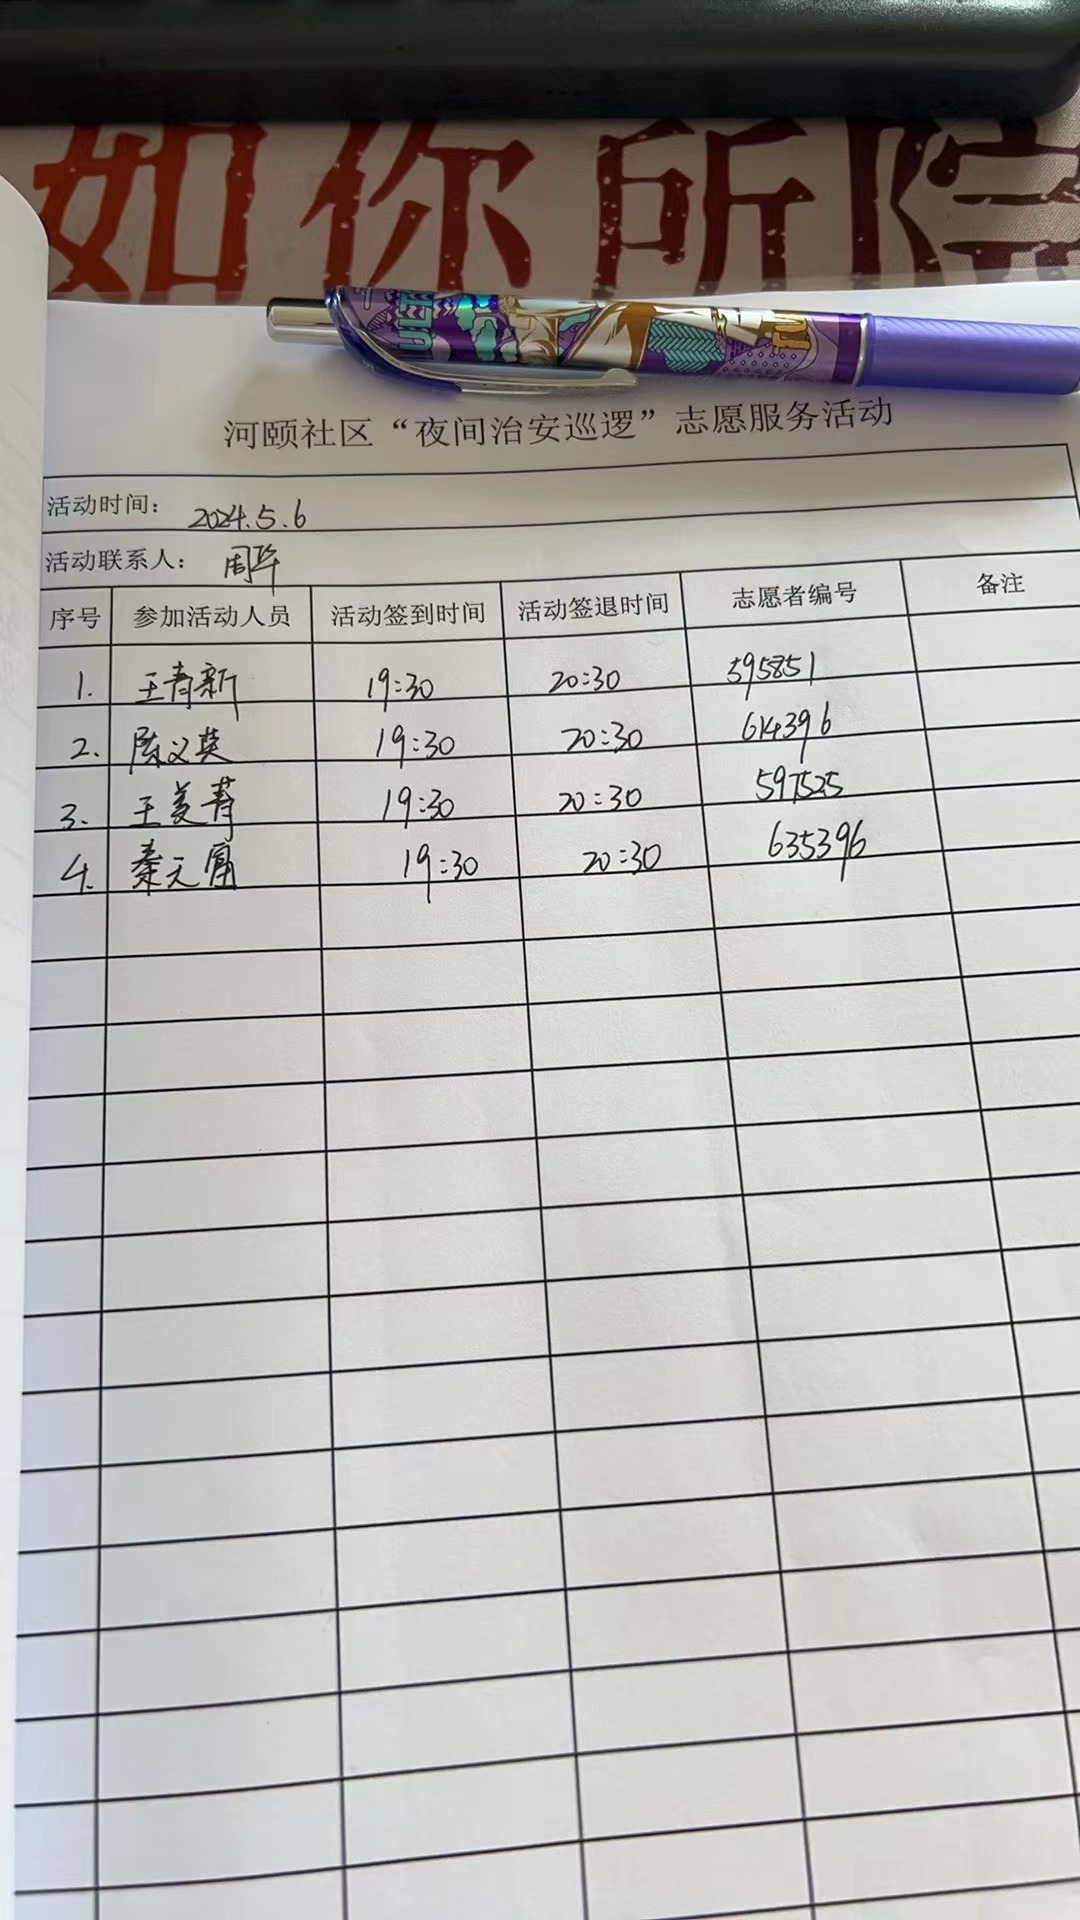 如你所
河颐社区“夜间治安巡逻”志愿服务活动
活动时间： 2024.5.6
活动联系人： 周华
序号 参加活动人员 活动签到时间 活动签退时间 志愿者编号 备注
1. 王青新 19:30 20:30 595851
2. 陈义英 19:30 20:30 614396
3. 王美菁 19:30 20:30 597525
4. 秦元富 19:30 20:30 635396